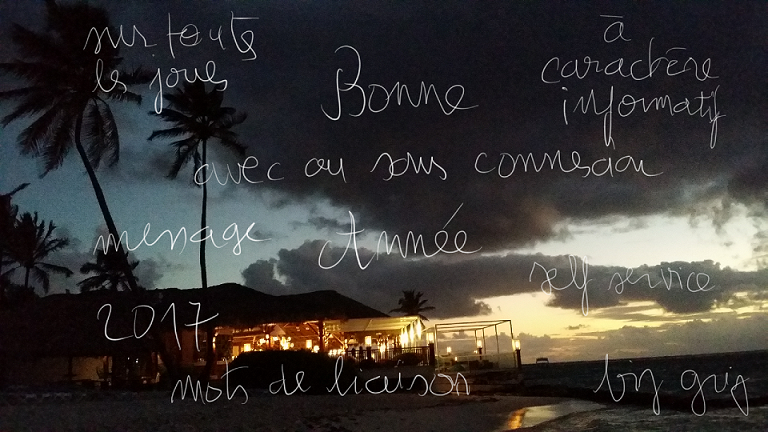 sur toutes
les joues
Bonne
à
caractère
informatif
avec ou sans connexion
message
Année
self service
2017
mots de liaison
biz gris